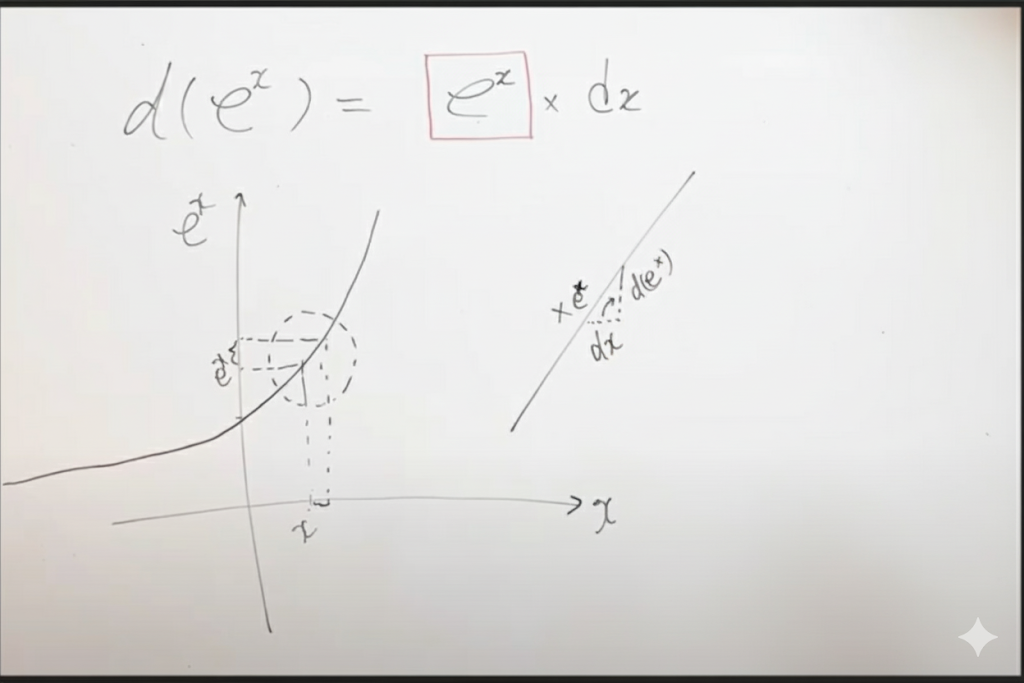 d(eˣ) = eˣ × dx
eˣ
× eˣ
d(eˣ)
dx
eˣ
x
x